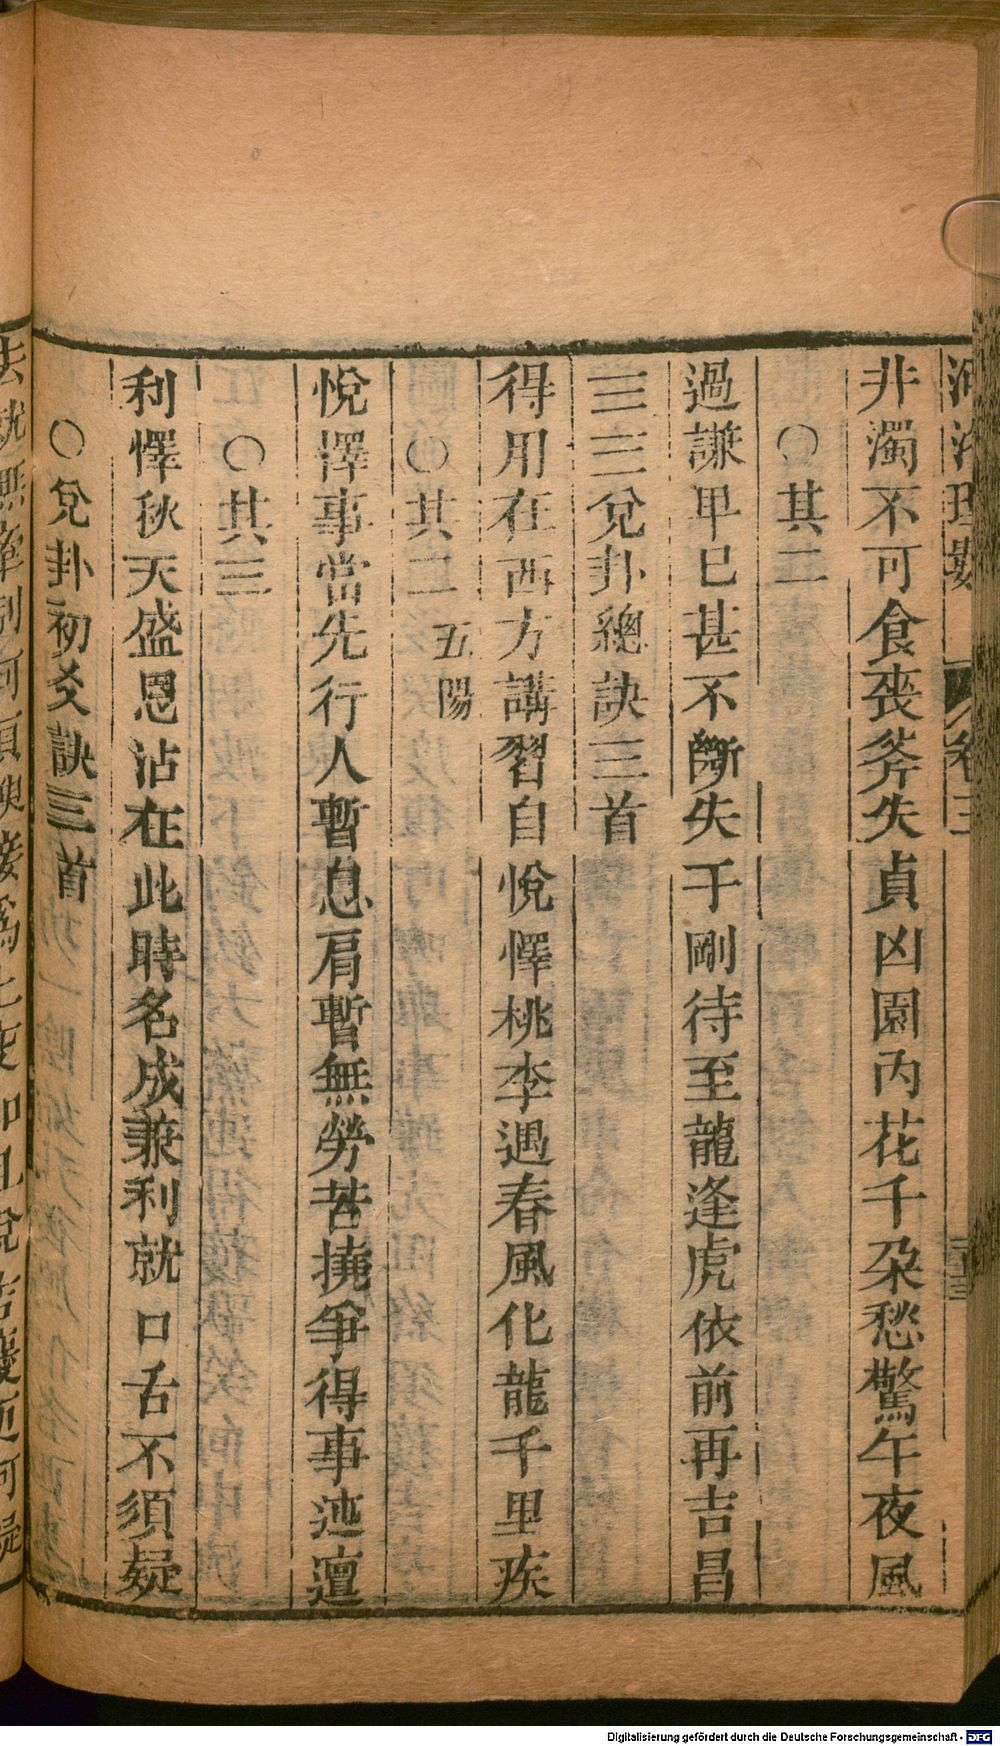 河洛理數 卷三 三十三
非濁不可食喪斧失貞凶園內花千朵愁驚午夜風
○其二
過謙畢已甚不斷失于剛待至龍逢虎依前再吉昌
三三兌卦總訣三首
得用在西方講習自悅懌桃李遇春風化龍千里疾
○其二 五陽
悅澤事當先行人暫息肩暫無勞苦撓爭得事迍邅
○其三
利懌秋天盛恩沾在此時名成兼利就口舌不須疑
○兌卦初爻訣三首
Digitalisierung gefördert durch die Deutsche Forschungsgemeinschaft - DFG